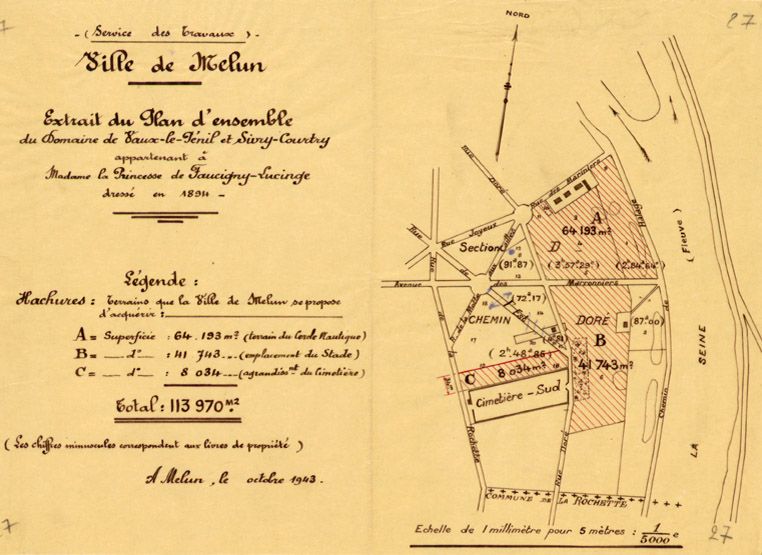 - (Service des Travaux) -
Ville de Melun
Extrait du Plan d'ensemble
du Domaine de Vaux-le-Pénil et Sivry-Courtry
appartenant à
Madame la Princesse de Faucigny-Lucinge
dressé en 1894 -
Légende :
Hachures : Terrains que la Ville de Melun se propose
d'acquérir :
A = Superficie : 64.193 m² (terrain du Cercle Nautique)
B = _ d° _ : 41 743 _ _ (emplacement du Stade)
C = _ d° _ : 8 034 _ _ (agrandissnt du Cimetière)
Total : 113 970 m²
(Les chiffres minuscules correspondent aux livres de propriété)
A Melun, le octobre 1943.
27
NORD
Rue Doré
Rue des Mariniers
Rue Joyeux
Rue
Section
D
A
64 193 m²
(91ª87)
(3ʰ57ª29ᶜ)
(2ʰ84ª64ᶜ)
Halage
Avenue des Marronniers
de
(72ª17)
CHEMIN
DORÉ
(87ª00)
B
41 743 m²
(2ʰ48ª86)
C
8 034 m²
Cimetière - Sud
Rochette
Rue Doré
Chemin
(Fleuve)
SEINE
LA
COMMUNE DE LA ROCHETTE
Echelle de 1 millimètre pour 5 mètres : 1/5000 e
27